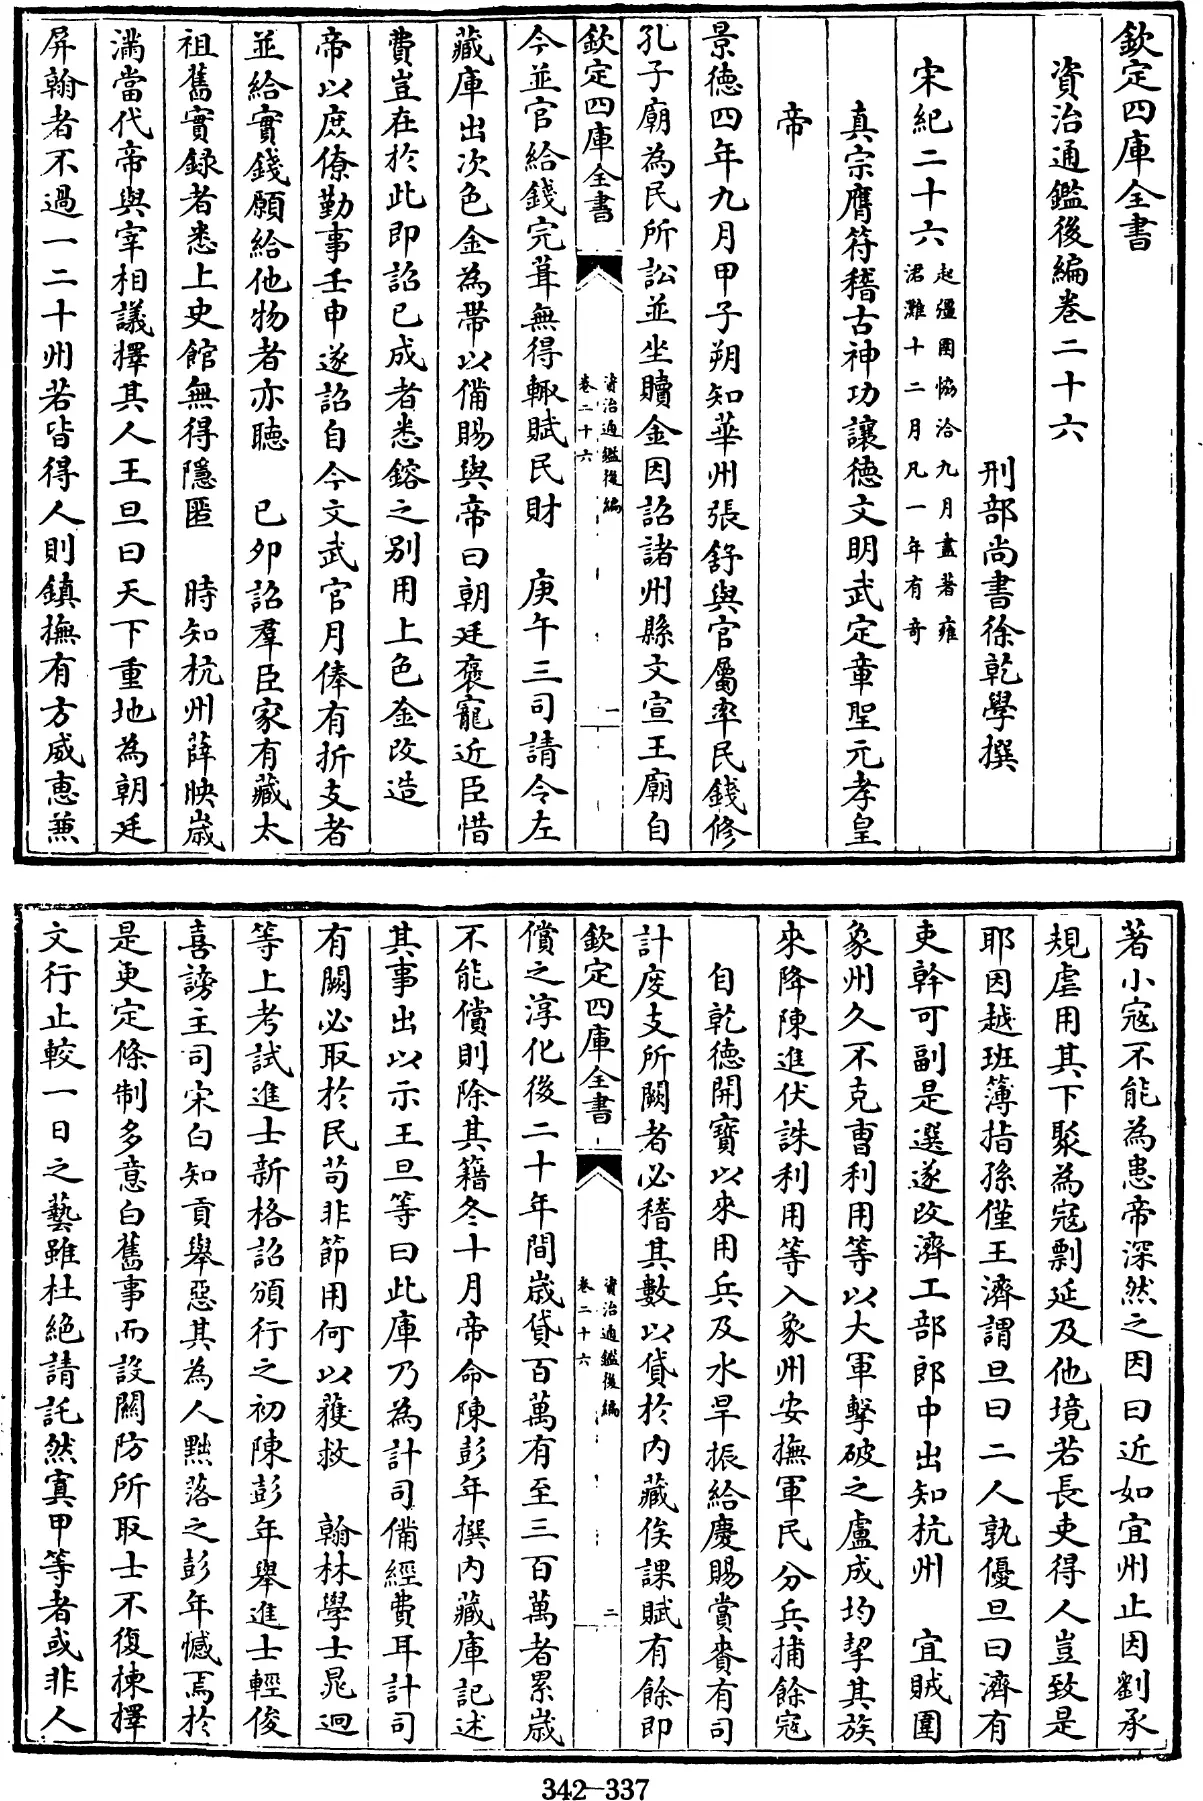 欽定四庫全書
資治通鑑後編卷二十六
刑部尚書徐乾學撰
宋紀二十六起彊圉協洽九月盡著雍
涒灘十二月凡一年有奇
真宗膺符稽古神功讓德文明武定章聖元孝皇
帝
景德四年九月甲子朔知華州張舒與官屬率民錢修
孔子廟為民所訟並坐贖金因詔諸州縣文宣王廟自
欽定四庫全書
資治通鑑後編
卷二十六
一
今並官給錢完葺無得輙賦民財　庚午三司請令左
藏庫出次色金為帶以備賜與帝曰朝廷褒寵近臣惜
費豈在於此即詔已成者悉鎔之别用上色金改造
帝以庶僚勤事壬申遂詔自今文武官月俸有折支者
並給實錢願給他物者亦聽　己卯詔羣臣家有藏太
祖舊實録者悉上史館無得隱匿　時知杭州薛映歲
滿當代帝與宰相議擇其人王旦曰天下重地為朝廷
屏翰者不過一二十州若皆得人則鎮撫有方威惠兼
著小寇不能為患帝深然之因曰近如宜州止因劉承
規虐用其下聚為寇剽延及他境若長吏得人豈致是
耶因越班簿指孫僅王濟謂旦曰二人孰優旦曰濟有
吏幹可副是選遂改濟工部郎中出知杭州　宜賊圍
象州久不克曹利用等以大軍擊破之盧成均挈其族
來降陳進伏誅利用等入象州安撫軍民分兵捕餘寇
自乾德開寶以來用兵及水旱振給慶賜賞賚有司
計度支所闕者必稽其數以貸於内藏俟課賦有餘即
欽定四庫全書
資治通鑑後編
卷二十六
二
償之淳化後二十年間歲貸百萬有至三百萬者累歲
不能償則除其籍冬十月帝命陳彭年撰内藏庫記述
其事出以示王旦等曰此庫乃為計司備經費耳計司
有闕必取於民茍非節用何以蘓救　翰林學士晁迥
等上考試進士新格詔頒行之初陳彭年舉進士輕俊
喜謗主司宋白知貢舉惡其為人黜落之彭年憾焉於
是更定條制多意白舊事而設關防所取士不復揀擇
文行止較一日之藝雖杜絶請託然寘甲等者或非人
342-337